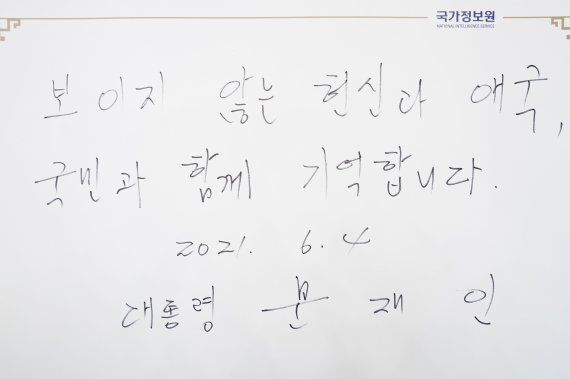 국가정보원
NATIONAL INTELLIGENCE SERVICE
보이지 않는 헌신과 애국,
국민과 함께 기억합니다.
2021. 6. 4
대통령 문재인